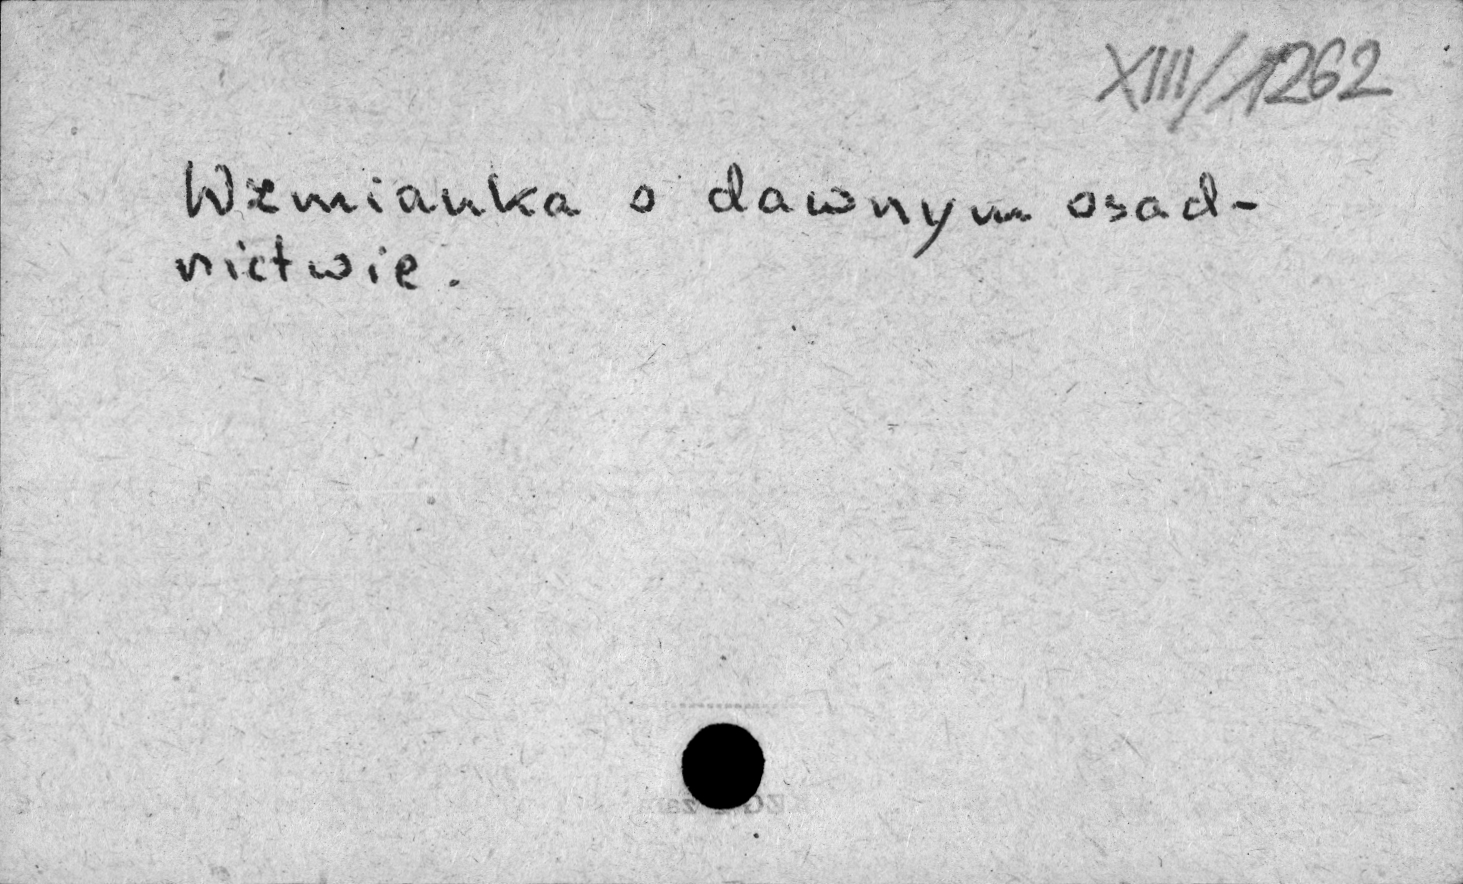 XIII/1262
Wzmianka o dawnym osad-
nictwie.